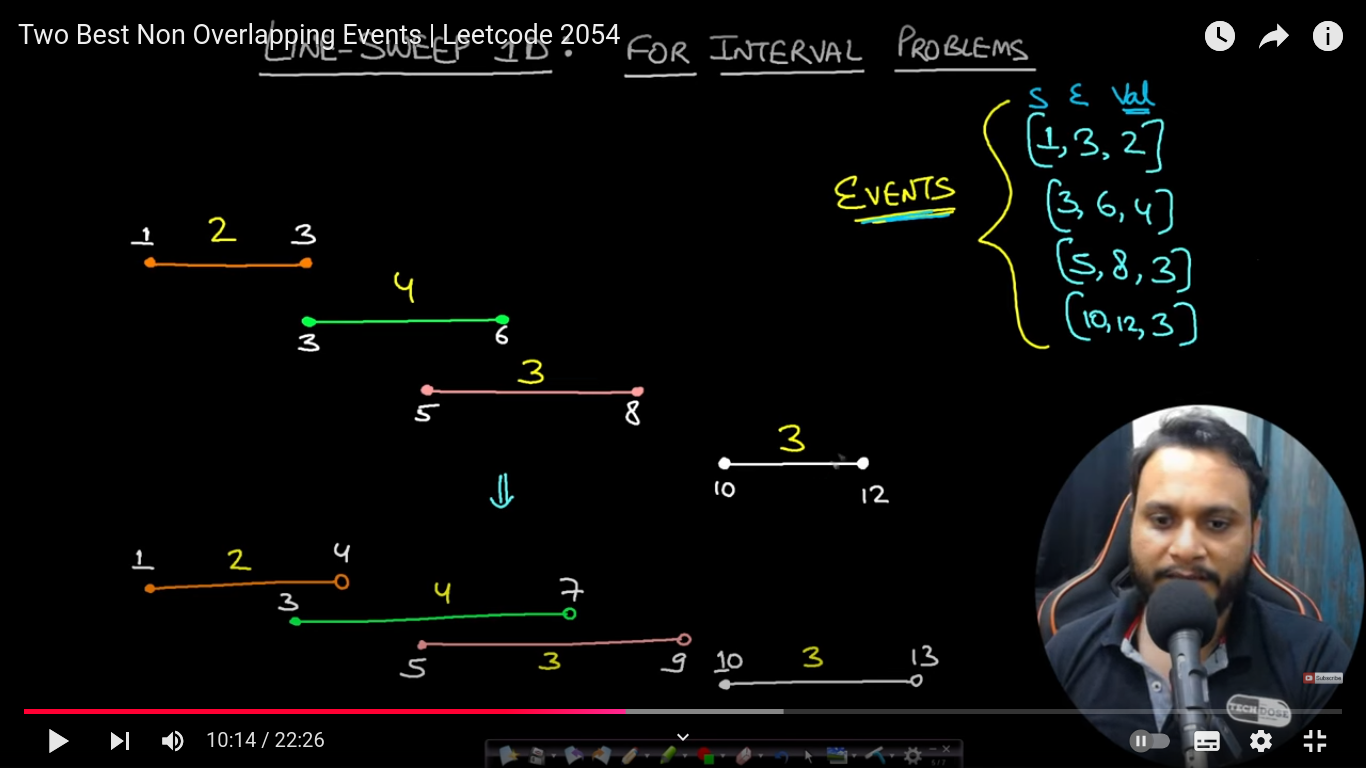 Two Best Non Overlapping Events | Leetcode 2054
LINE-SWEEP 1D: FOR INTERVAL PROBLEMS
S E Val
[1, 3, 2]
EVENTS
[3, 6, 4]
[5, 8, 3]
[10, 12, 3]
1 2 3
4
3 6
3
5 8
3
10 12
1 2 4
3 4 7
5 3 9
10 3 13
Subscribe
TECH DOSE
10:14 / 22:26
5/7